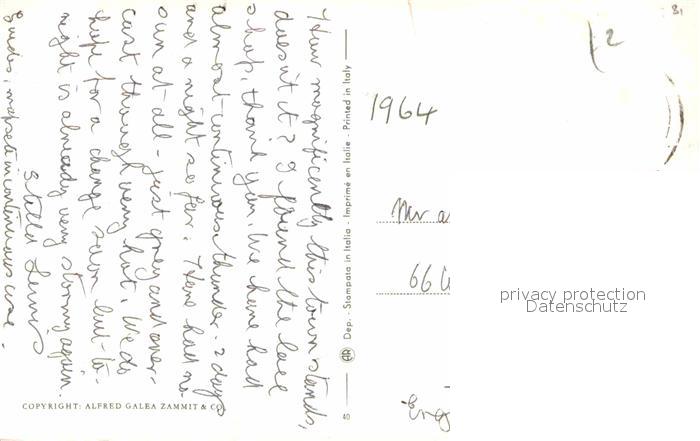 How magnificently this town stands,
doesn't it? I found the lace
shop, thank you. We have had
almost-continuous thunder - 2 days
and a night so far. & have had no
sun at-all - just grey and over-
cast though very hot. We do
hope for a change soon but-to-
night is already very stormy again.
Stella Lewis
guides, maps etc in continuous use.
COPYRIGHT: ALFRED GALEA ZAMMIT & CO
Dep. - Stampata in Italia - Imprimé en Italie - Printed in Italy
40
1964
12
81
Mr a
66
Eng
privacy protection
Datenschutz